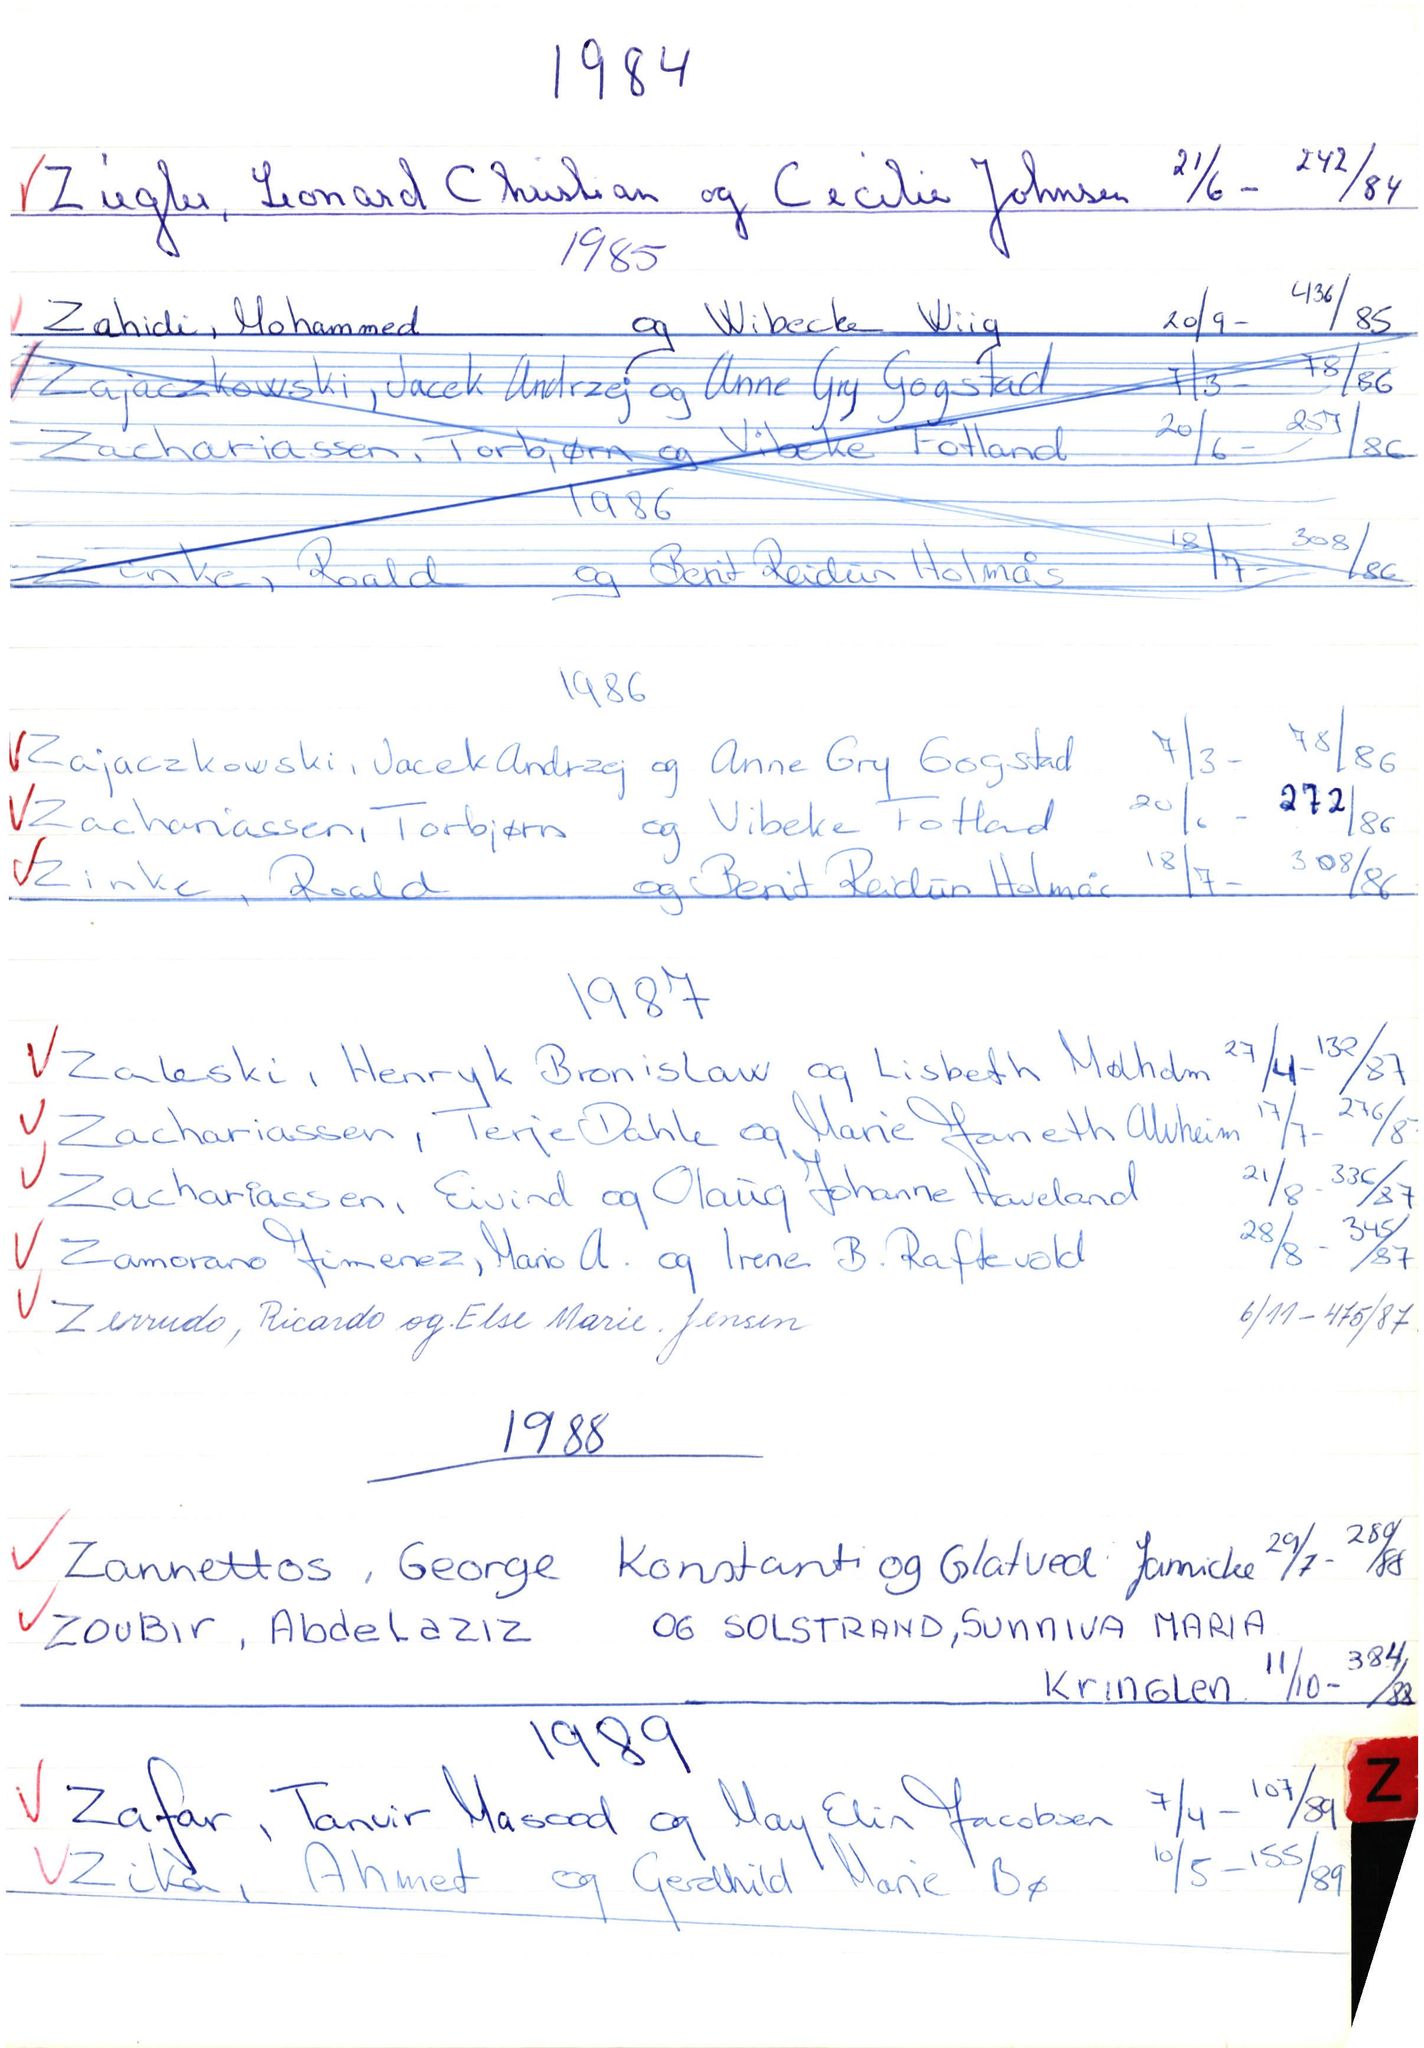 1984
Ziegler, Leonard Christian og Cecilie Johnsen 21/6 - 242/84
1985
Zahidi, Mohammed og Wibecke Wiig 20/9 - 436/85
Zajaczkowski, Jacek Andrzej og Anne Gry Gogstad 7/3 - 78/86
Zachariassen, Torbjørn og Vibeke Fotland 20/6 - 257/86
1986
Zinke, Roald og Berit Reidūn Holmås 18/7 - 308/86
1986
Zajaczkowski, Jacek Andrzej og Anne Gry Gogstad 7/3 - 78/86
Zachariassen, Torbjørn og Vibeke Fotland 20/6 - 272/86
Zinke, Roald og Berit Reidūn Holmås 18/7 - 308/86
1987
Zaleski, Henryk Bronislaw og Lisbeth 27/4 - 132/87
Zachariassen, Terje Dahle og Marie Janeth Alvheim 17/7 - 276/8
Zachariassen, Eivind og Olaūg Johanne Haveland 21/8 - 336/87
Zamorano Jimenez, Mario A. og Irene B. Raftevold 28/8 - 345/87
Zerrudo, Ricardo og Else Marie Jensen 6/11 - 475/87
1988
Zannettos, George Konstanti og Glatved Jannicke 29/7 - 289/88
ZOUBIr, AbdeLaZIZ OG SOLSTRAND, SUNNIVA MARIA
KrinGLen 11/10 - 384/88
1989
Zafar, Tanvir Masood og May Elin Jacobsen 7/4 - 107/89
Zika, Ahmet og Gerdhild Marie Bø 10/5 - 155/89
Z